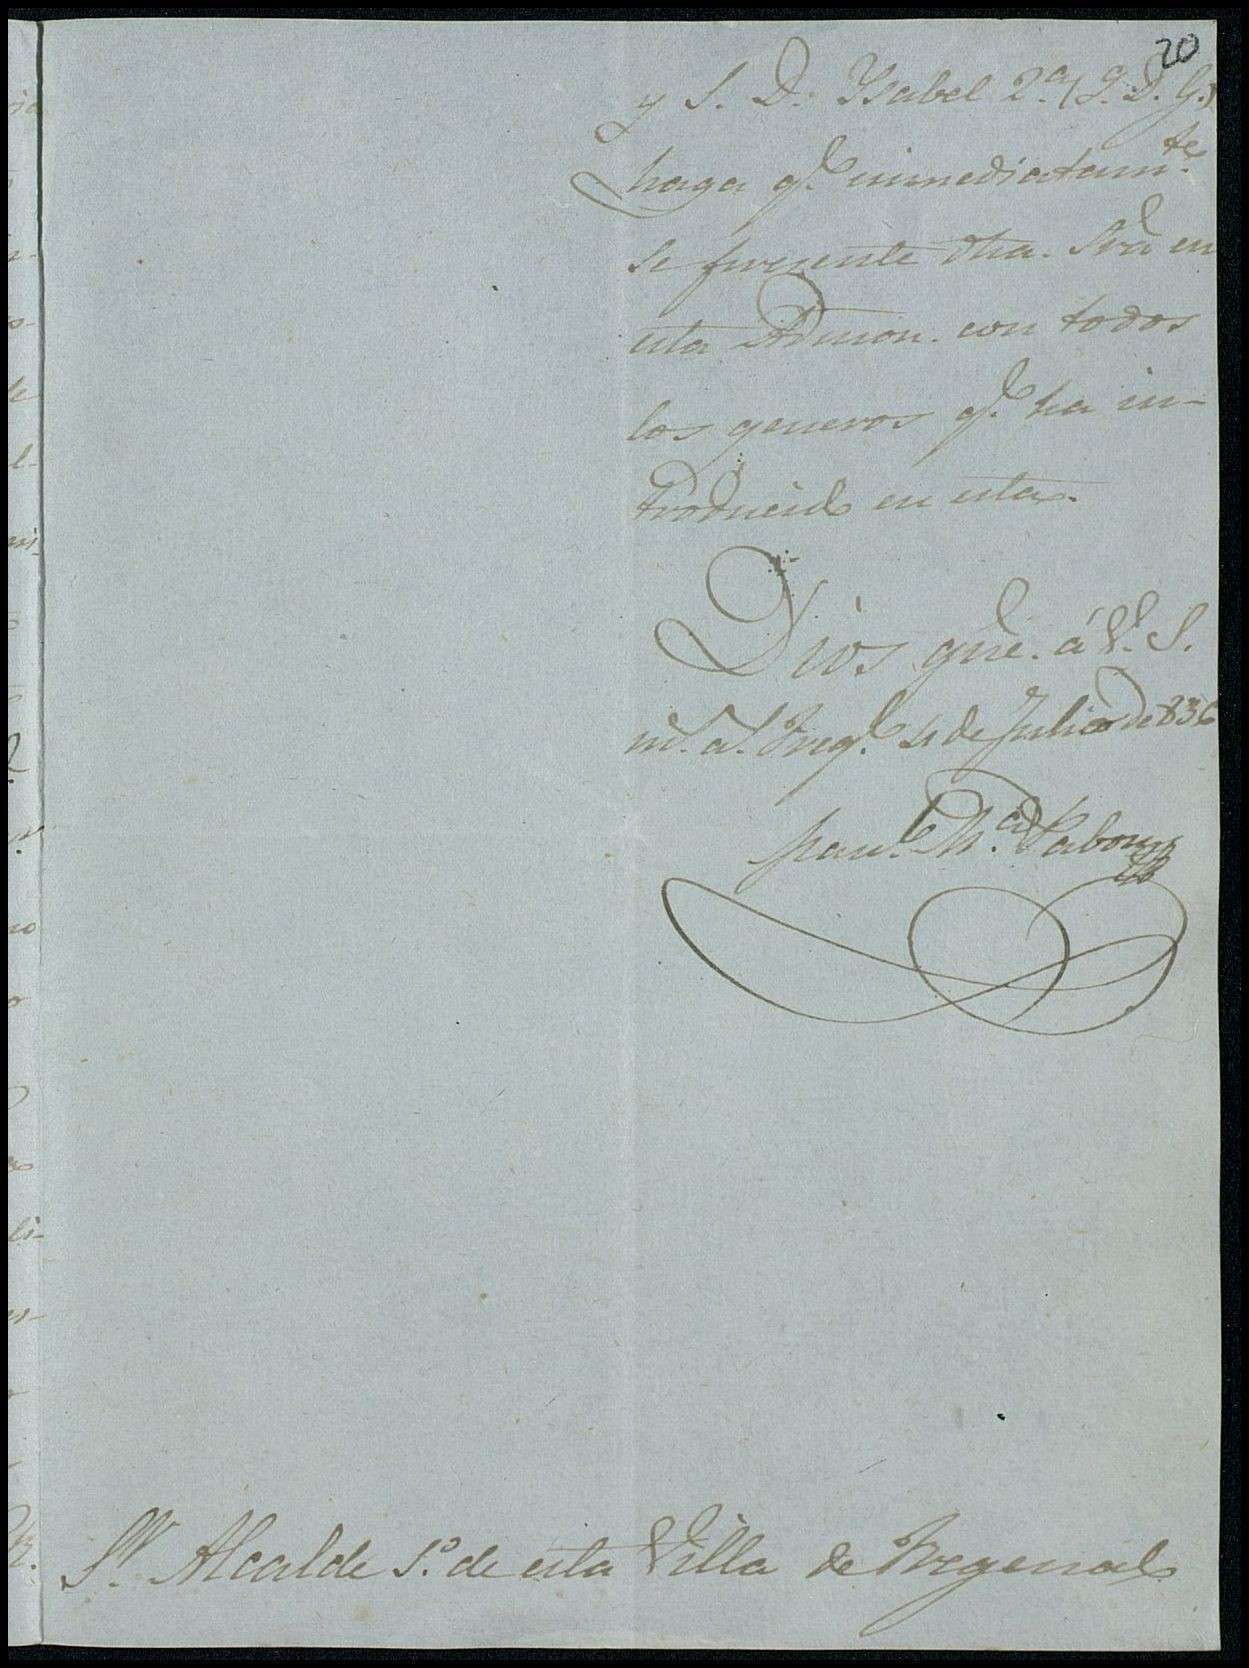 20
y S. D. Ysabel 2.ª (q. D. G.)
haga q.e inmediatam.te
se presente dha. Srã en
esta Admon. con todos
los generos q.e ha in-
troducido en esta.
Dios gũe. á V. S.
m.s a.s Freg.l 4 de Julio de 836
Man.l M.ª
Sr. Alcalde 1.º de esta Villa de Fregenal